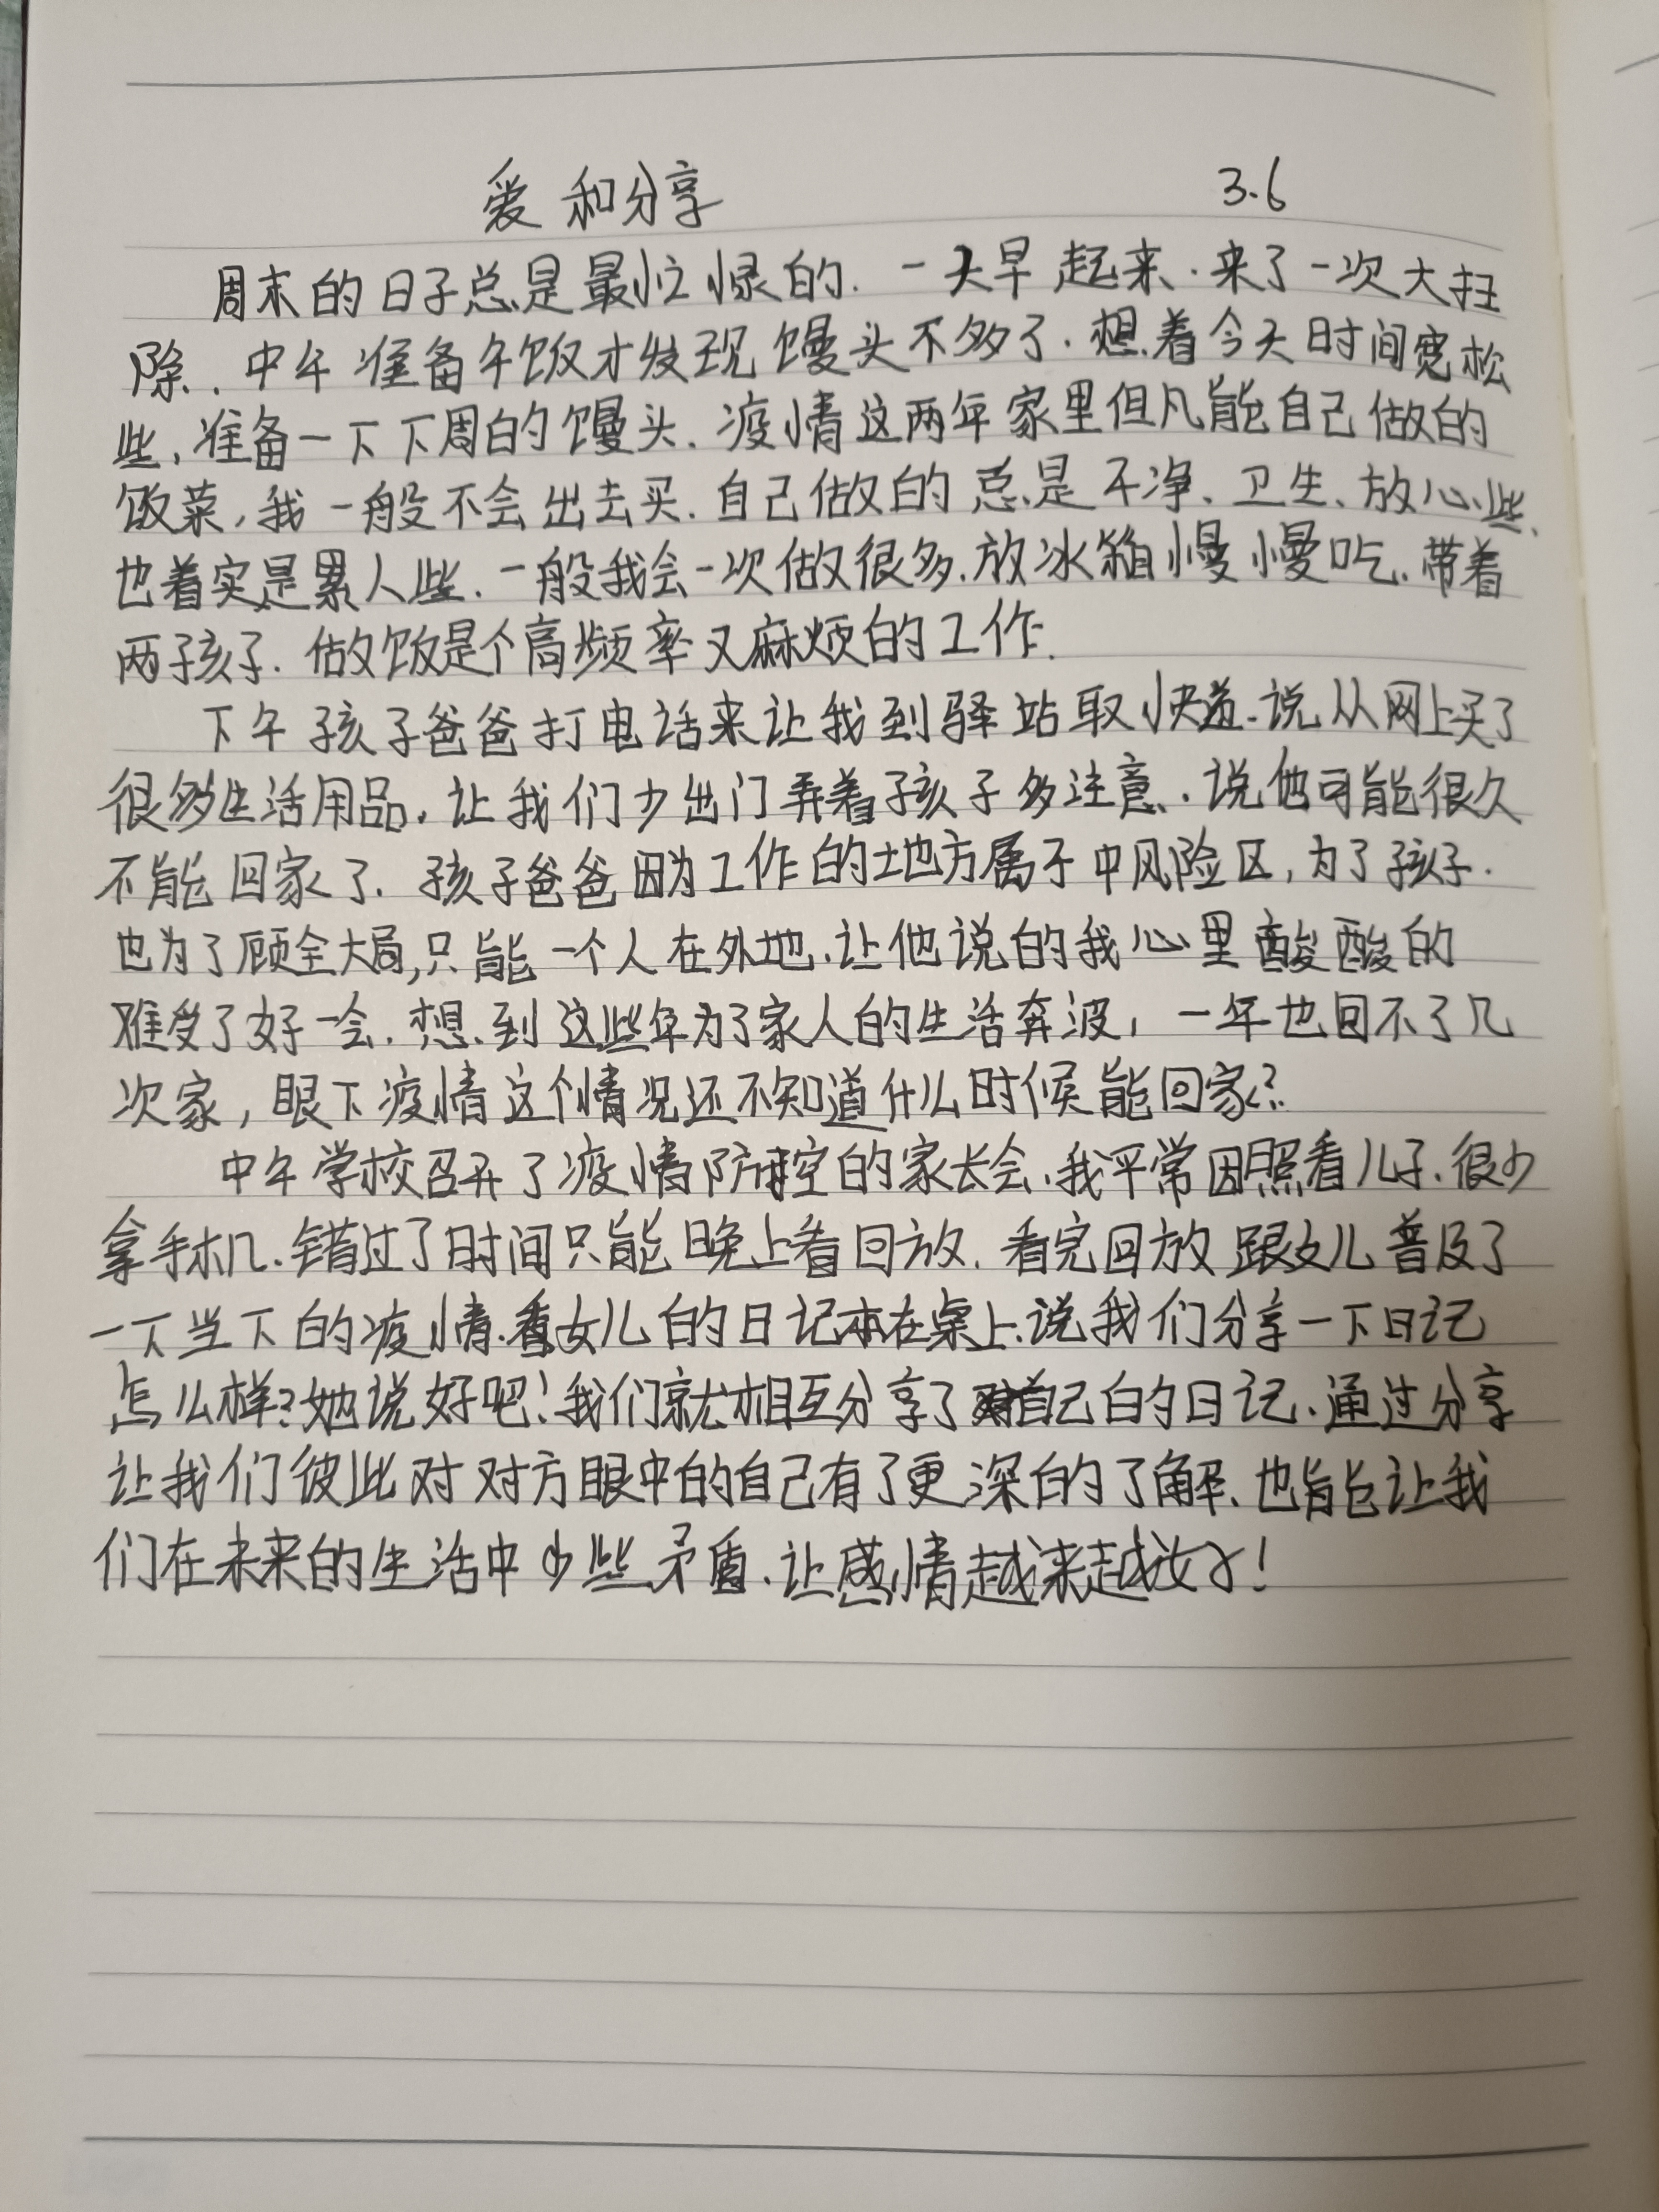 爱和分享 3.6
周末的日子总是最忙碌的.一大早起来.来了一次大扫
除.中午准备午饭才发现馒头不多了.想着今天时间宽松
些,准备一下下周的馒头.疫情这两年家里但凡能自己做的
饭菜,我一般不会出去买.自己做的总是干净、卫生、放心些、
也着实是累人些.一般我会一次做很多.放冰箱慢慢吃.带着
两孩子.做饭是个高频率又麻烦的工作.
下午孩子爸爸打电话来让我到驿站取快递.说从网上买了
很多生活用品.让我们少出门弄着孩子多注意.说他可能很久
不能回家了.孩子爸爸因为工作的地方属于中风险区,为了孩子.
也为了顾全大局,只能一个人在外地.让他说的我心里酸酸的
难受了好一会.想到这些年为了家人的生活奔波,一年也回不了几
次家,眼下疫情这个情况还不知道什么时候能回家?.
中午学校召开了疫情防控的家长会.我平常因照看儿子.很少
拿手机.错过了时间只能晚上看回放.看完回放跟女儿普及了
一下当下的疫情.看女儿的日记本在桌上.说我们分享一下日记
怎么样?她说好吧!我们就相互分享了自己的日记.通过分享
让我们彼此对对方眼中的自己有了更深的了解.也能让我
们在未来的生活中少些矛盾.让感情越来越好!